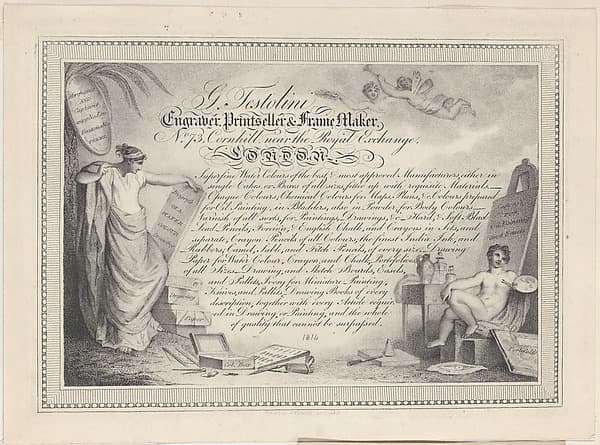 G. Testolini
Engraver, Printseller & Frame Maker,
No. 73, Cornhill, near the Royal Exchange,
LONDON.
Superfine Water Colours of the best & most approved Manufacturers, either in
single Cakes, or Boxes of all sizes, fitted up with requisite Materials.—
Opaque Colours, Chemical Colours for Maps, Plans, & Colours prepared
for Oil Painting, in Bladders, also in Powder for Body Colours.—
Varnish of all sorts, for Paintings, Drawings, &c. Hard, & Soft Black
Lead Pencils, Foreign, & English Chalk, and Crayons in Sets, and
separate, Crayon Pencils of all Colours, the finest India Ink, and
Rubbers, Camel, Sable, and Fitch Pencils, of every size, Drawing
Paper for Water Colour, Crayon, and Chalk, Portfolios
of all Sizes. Drawing, and Sketch Boards, Easels,
and Pallets, Ivory for Miniature Painting,
Knives, and Pallets, Drawing Books of every
description, together with every Article requir-
ed in Drawing, or Painting, and the whole
of quality that cannot be surpassed.
1814
Merchants
AND
Captains
supplied on
reasonable
terms
Paper
Col. Box